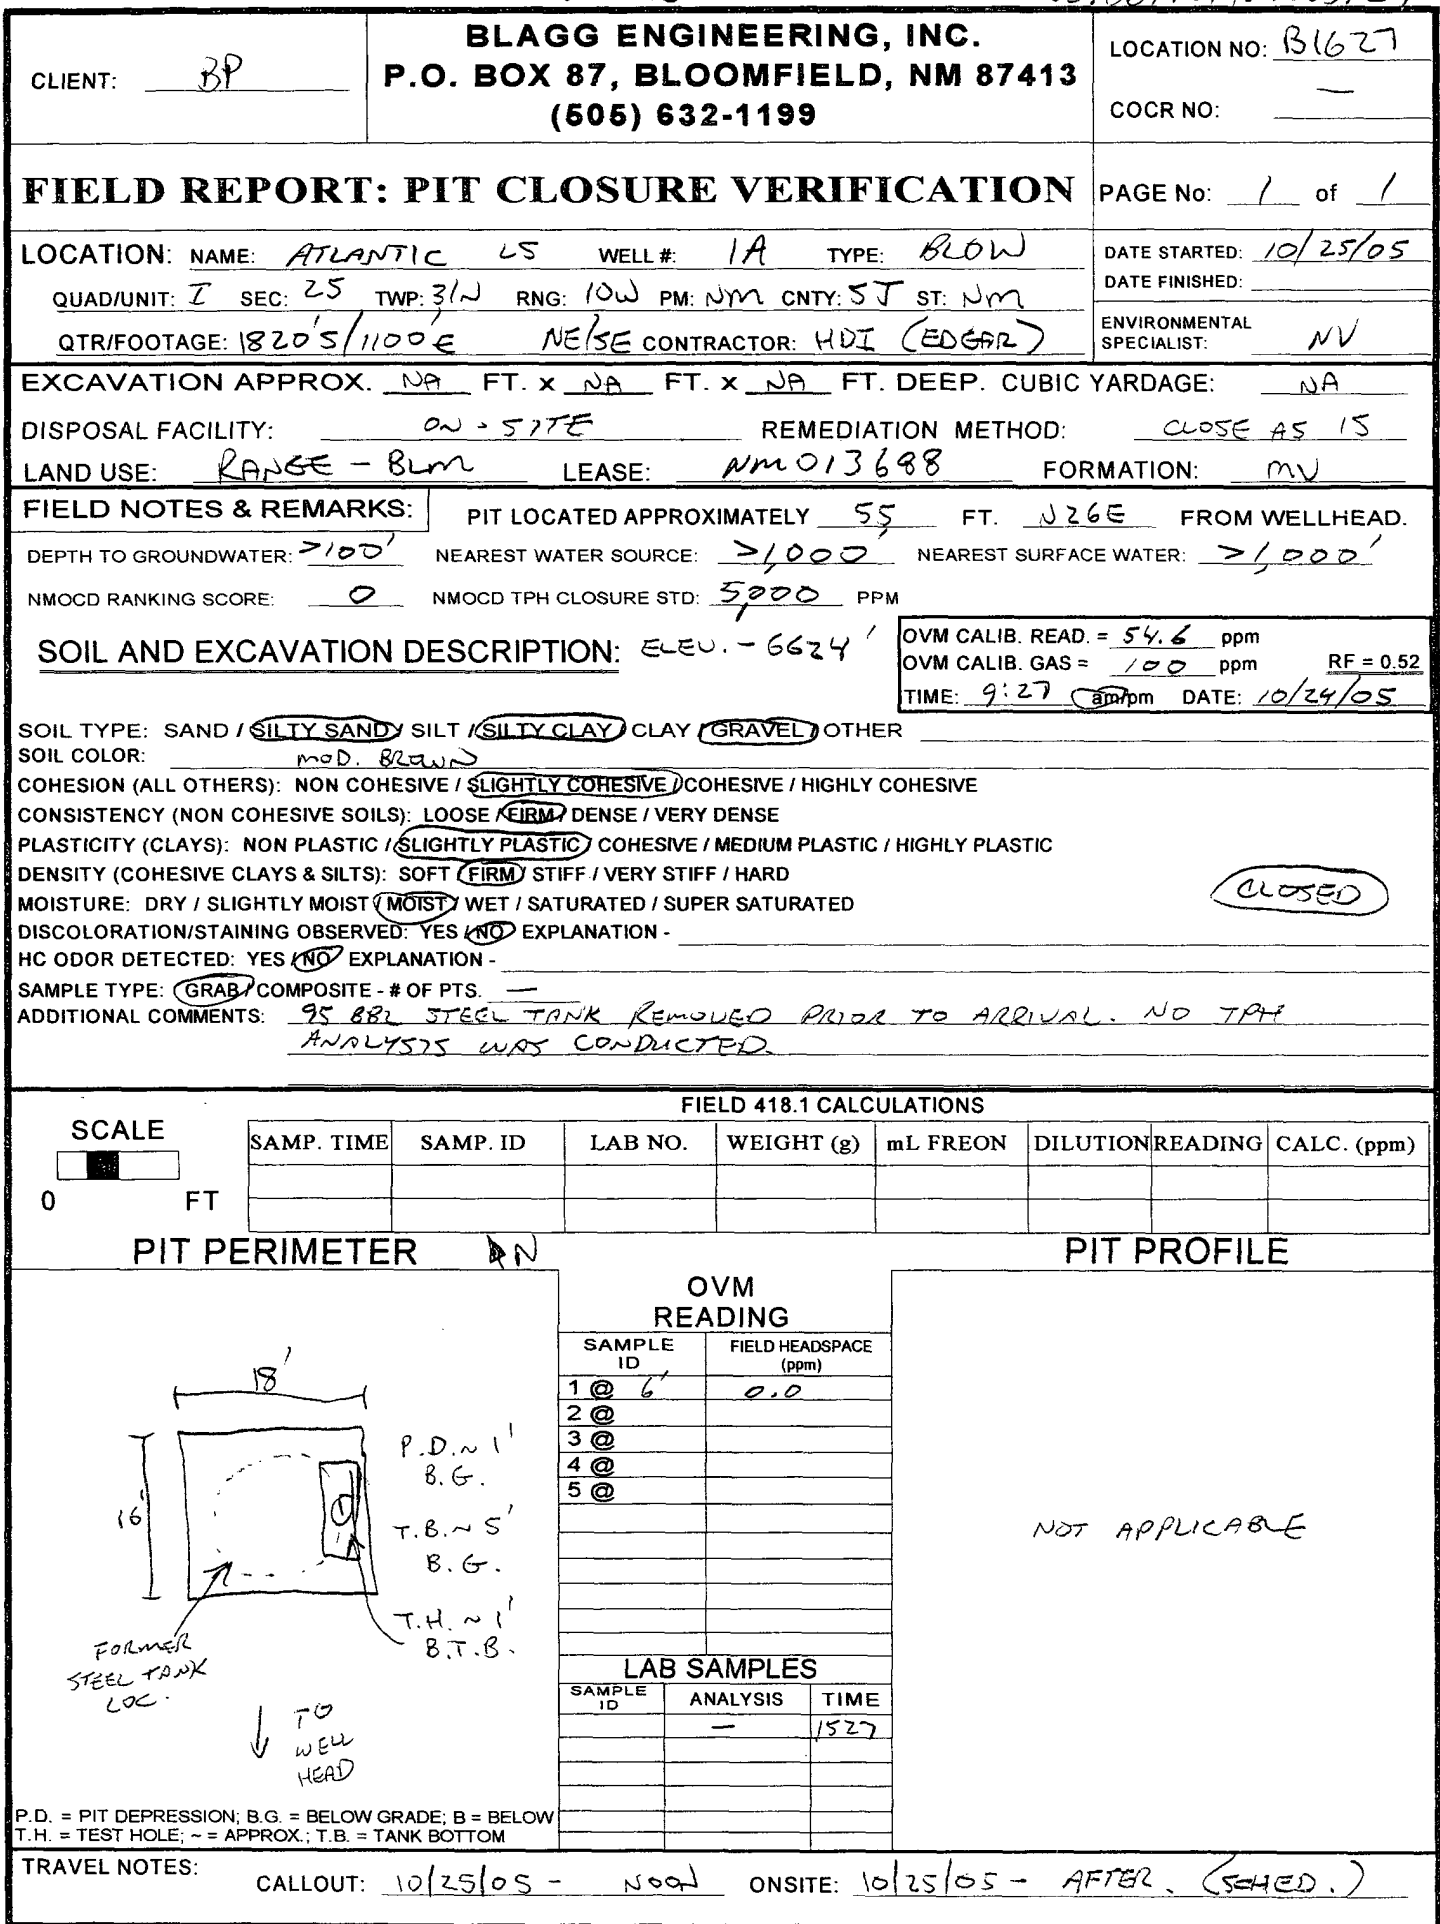 BLAGG ENGINEERING, INC.
P.O. BOX 87, BLOOMFIELD, NM 87413
(505) 632-1199
CLIENT: BP
LOCATION NO: B1627
COCR NO: —
FIELD REPORT: PIT CLOSURE VERIFICATION
PAGE No: 1 of 1
LOCATION: NAME: ATLANTIC LS WELL #: 1A TYPE: BLOW
QUAD/UNIT: I SEC: 25 TWP: 31N RNG: 10W PM: NM CNTY: SJ ST: NM
QTR/FOOTAGE: 1820'S/1100'E NE/SE CONTRACTOR: HDI (EDGAR)
DATE STARTED: 10/25/05
DATE FINISHED:
ENVIRONMENTAL SPECIALIST: NV
EXCAVATION APPROX. NA FT. x NA FT. x NA FT. DEEP. CUBIC YARDAGE: NA
DISPOSAL FACILITY: ON-SITE REMEDIATION METHOD: CLOSE AS IS
LAND USE: RANGE - BLM LEASE: NM013688 FORMATION: MV
FIELD NOTES & REMARKS: PIT LOCATED APPROXIMATELY 55 FT. N26E FROM WELLHEAD.
DEPTH TO GROUNDWATER: >100' NEAREST WATER SOURCE: >1,000' NEAREST SURFACE WATER: >1,000'
NMOCD RANKING SCORE: 0 NMOCD TPH CLOSURE STD: 5,000 PPM
SOIL AND EXCAVATION DESCRIPTION: ELEV. - 6624'
OVM CALIB. READ. = 54.6 ppm
OVM CALIB. GAS = 100 ppm RF = 0.52
TIME: 9:27 am/pm DATE: 10/24/05
SOIL TYPE: SAND / SILTY SAND / SILT / SILTY CLAY / CLAY / GRAVEL / OTHER
SOIL COLOR: MOD. BROWN
COHESION (ALL OTHERS): NON COHESIVE / SLIGHTLY COHESIVE / COHESIVE / HIGHLY COHESIVE
CONSISTENCY (NON COHESIVE SOILS): LOOSE / FIRM / DENSE / VERY DENSE
PLASTICITY (CLAYS): NON PLASTIC / SLIGHTLY PLASTIC / COHESIVE / MEDIUM PLASTIC / HIGHLY PLASTIC
DENSITY (COHESIVE CLAYS & SILTS): SOFT / FIRM / STIFF / VERY STIFF / HARD
MOISTURE: DRY / SLIGHTLY MOIST / MOIST / WET / SATURATED / SUPER SATURATED
CLOSED
DISCOLORATION/STAINING OBSERVED: YES / NO EXPLANATION -
HC ODOR DETECTED: YES / NO EXPLANATION -
SAMPLE TYPE: GRAB / COMPOSITE - # OF PTS. —
ADDITIONAL COMMENTS: 95 BBL STEEL TANK REMOVED PRIOR TO ARRIVAL. NO TPH
ANALYSIS WAS CONDUCTED.
SCALE
0 FT
FIELD 418.1 CALCULATIONS
SAMP. TIME SAMP. ID LAB NO. WEIGHT (g) mL FREON DILUTION READING CALC. (ppm)
PIT PERIMETER N
18'
16'
P.D. ~ 1'
B.G.
T.B. ~ 5'
B.G.
T.H. ~ 1'
B.T.B.
1
FORMER
STEEL TANK
LOC.
TO
WELL
HEAD
P.D. = PIT DEPRESSION; B.G. = BELOW GRADE; B = BELOW
T.H. = TEST HOLE; ~ = APPROX.; T.B. = TANK BOTTOM
OVM
READING
SAMPLE ID FIELD HEADSPACE (ppm)
1 @ 6' 0.0
2 @
3 @
4 @
5 @
LAB SAMPLES
SAMPLE ID ANALYSIS TIME
— 1527
PIT PROFILE
NOT APPLICABLE
TRAVEL NOTES: CALLOUT: 10/25/05 - NOON ONSITE: 10/25/05 - AFTER. (SCHED.)